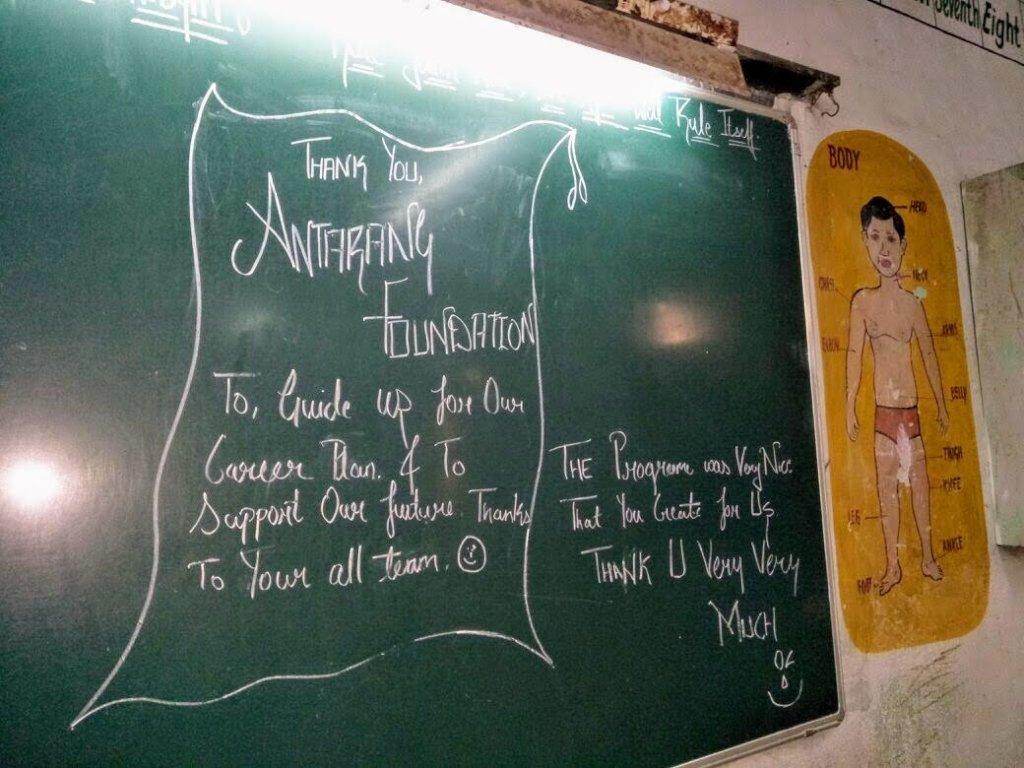 Rule Itself.
THANK YOU,
ANTARANG
FOUNDATION
To, Guide up for Our
Career Plan. & To
Support Our future Thanks
To Your all team.
THE Program was Very Nice
That You Create for Us
THANK U Very Very
MUCH
Seventh Eight
BODY
HEAD
NECK
CHEST
ARMS
ELBOW
BELLY
THIGH
KNEE
LEG
ANKLE
FOOT